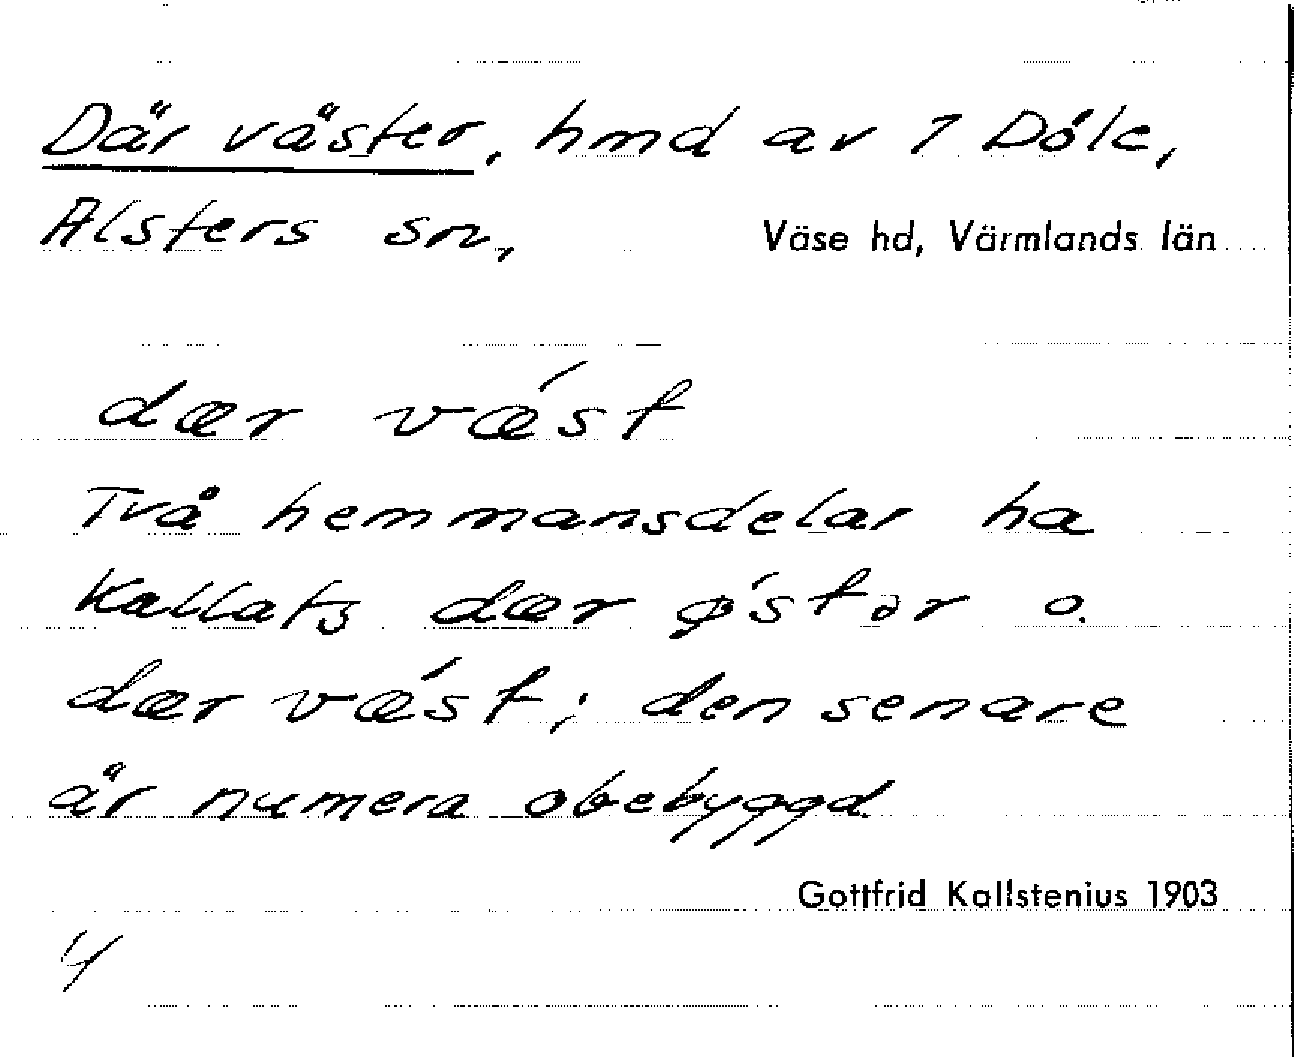 Där väster, hmd av 1 Dóle,
Alsters sn, Väse hd, Värmlands län
dær vǽst
Två hemmansdelar ha
kallats dær ǿstər o.
dær vǽst; den senare
är numera obebyggd.
Gottfrid Kallstenius 1903
4